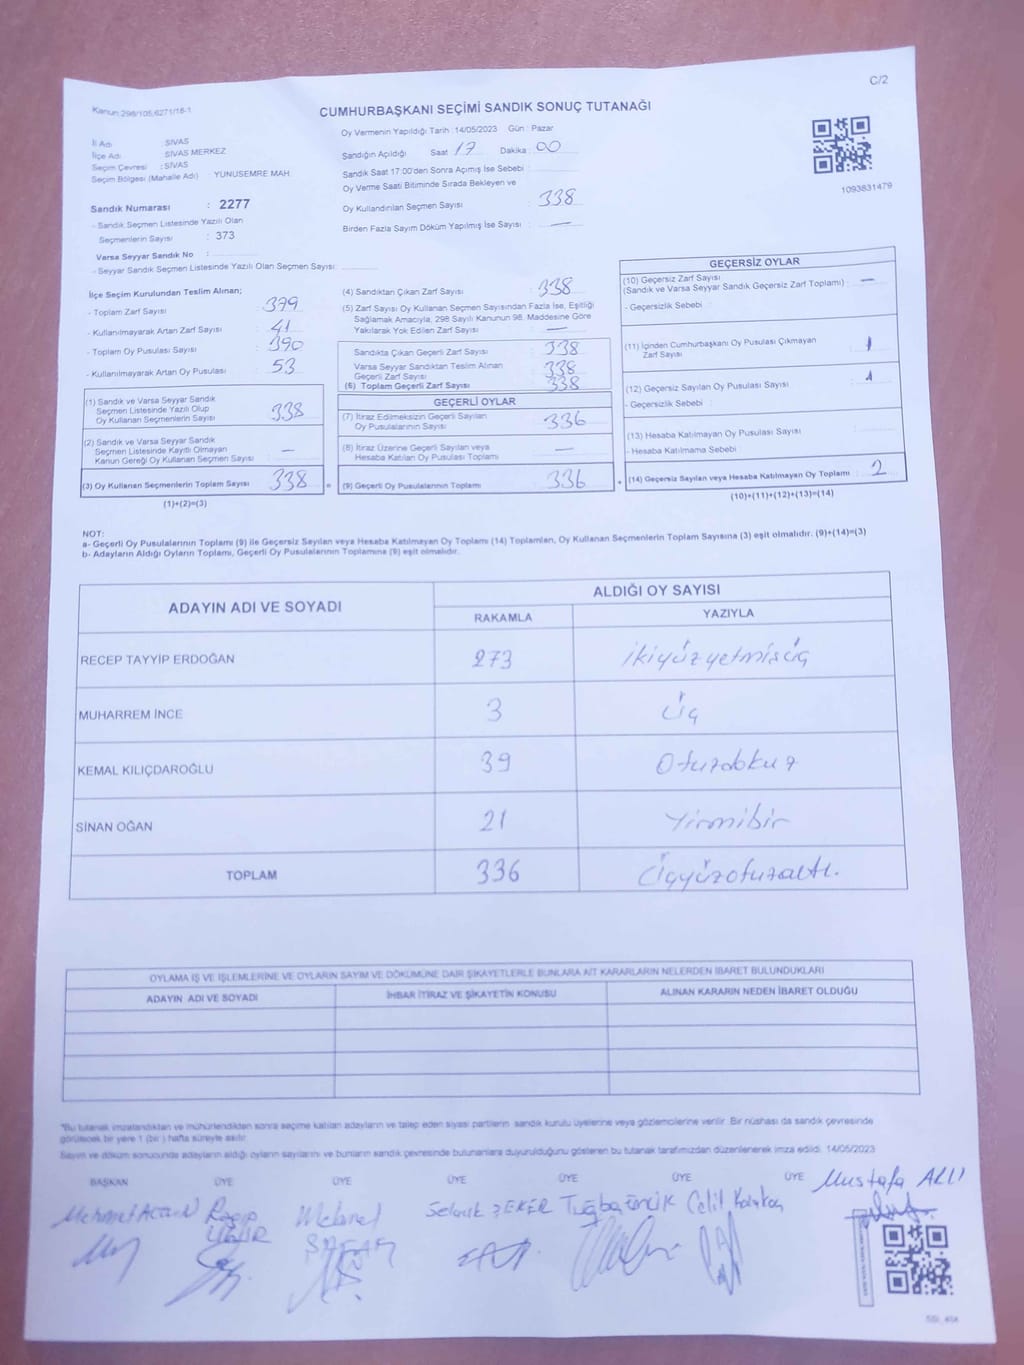 C/2
Kanun:298/105,6271/18-1
CUMHURBAŞKANI SEÇİMİ SANDIK SONUÇ TUTANAĞI
İl Adı : SİVAS
İlçe Adı : SİVAS MERKEZ
Seçim Çevresi : SİVAS
Seçim Bölgesi (Mahalle Adı) YUNUSEMRE MAH.
Sandık Numarası : 2277
- Sandık Seçmen Listesinde Yazılı Olan
Seçmenlerin Sayısı : 373
Varsa Seyyar Sandık No :
- Seyyar Sandık Seçmen Listesinde Yazılı Olan Seçmen Sayısı:
Oy Vermenin Yapıldığı Tarih :14/05/2023 Gün : Pazar
Sandığın Açıldığı Saat : 17 Dakika : 00
Sandık Saat 17:00'den Sonra Açımış İse Sebebi :
Oy Verme Saati Bitiminde Sırada Bekleyen ve
Oy Kullandırılan Seçmen Sayısı : 338
Birden Fazla Sayım Döküm Yapılmış İse Sayısı : —
1093831479
İlçe Seçim Kurulundan Teslim Alınan;
- Toplam Zarf Sayısı : 379
- Kullanılmayarak Artan Zarf Sayısı : 41
- Toplam Oy Pusulası Sayısı : 390
- Kullanılmayarak Artan Oy Pusulası : 53
(1) Sandık ve Varsa Seyyar Sandık
Seçmen Listesinde Yazılı Olup
Oy Kullanan Seçmenlerin Sayısı : 338
(2) Sandık ve Varsa Seyyar Sandık
Seçmen Listesinde Kayıtlı Olmayan
Kanun Gereği Oy Kullanan Seçmen Sayısı : —
(3) Oy Kullanan Seçmenlerin Toplam Sayısı : 338
(1)+(2)=(3)
(4) Sandıktan Çıkan Zarf Sayısı : 338
(5) Zarf Sayısı Oy Kullanan Seçmen Sayısından Fazla İse, Eşitliği
Sağlamak Amacıyla, 298 Sayılı Kanunun 98. Maddesine Göre
Yakılarak Yok Edilen Zarf Sayısı : —
Sandıkta Çıkan Geçerli Zarf Sayısı : 338
Varsa Seyyar Sandıktan Teslim Alınan
Geçerli Zarf Sayısı : 338
(6) Toplam Geçerli Zarf Sayısı : 338
GEÇERLİ OYLAR
(7) İtiraz Edilmeksizin Geçerli Sayılan
Oy Pusulalarının Sayısı : 336
(8) İtiraz Üzerine Geçerli Sayılan veya
Hesaba Katılan Oy Pusulası Toplamı : —
= (9) Geçerli Oy Pusulalarının Toplamı : 336
GEÇERSİZ OYLAR
(10) Geçersiz Zarf Sayısı
(Sandık ve Varsa Seyyar Sandık Geçersiz Zarf Toplamı) : —
- Geçersizlik Sebebi :
(11) İçinden Cumhurbaşkanı Oy Pusulası Çıkmayan
Zarf Sayısı : 1
(12) Geçersiz Sayılan Oy Pusulası Sayısı : 1
- Geçersizlik Sebebi :
(13) Hesaba Katılmayan Oy Pusulası Sayısı :
- Hesaba Katılmama Sebebi :
+ (14) Geçersiz Sayılan veya Hesaba Katılmayan Oy Toplamı : 2
(10)+(11)+(12)+(13)=(14)
NOT:
a- Geçerli Oy Pusulalarının Toplamı (9) ile Geçersiz Sayılan veya Hesaba Katılmayan Oy Toplamı (14) Toplamları, Oy Kullanan Seçmenlerin Toplam Sayısına (3) eşit olmalıdır. (9)+(14)=(3)
b- Adayların Aldığı Oyların Toplamı, Geçerli Oy Pusulalarının Toplamına (9) eşit olmalıdır.
ADAYIN ADI VE SOYADI ALDIĞI OY SAYISI
RAKAMLA YAZIYLA
RECEP TAYYİP ERDOĞAN 273 ikiyüzyetmişüç
MUHARREM İNCE 3 Üç
KEMAL KILIÇDAROĞLU 39 Otuzdokuz
SİNAN OĞAN 21 Yirmibir
TOPLAM 336 Üçyüzotuzaltı.
OYLAMA İŞ VE İŞLEMLERİNE VE OYLARIN SAYIM VE DÖKÜMÜNE DAİR ŞİKAYETLERLE BUNLARA AİT KARARLARIN NELERDEN İBARET BULUNDUKLARI
ADAYIN ADI VE SOYADI İHBAR İTİRAZ VE ŞİKAYETİN KONUSU ALINAN KARARIN NEDEN İBARET OLDUĞU
*Bu tutanak imzalandıktan ve mühürlendikten sonra seçime katılan adayların ve talep eden siyasi partilerin sandık kurulu üyelerine veya gözlemcilerine verilir. Bir nüshası da sandık çevresinde
görülecek bir yere 1 (bir ) hafta süreyle asılır.
Sayım ve döküm sonucunda adayların aldığı oyların sayılarını ve bunların sandık çevresinde bulunanlara duyurulduğunu gösteren bu tutanak tarafımızdan düzenlenerek imza edildi. 14/05/2023
BAŞKAN ÜYE ÜYE ÜYE ÜYE ÜYE ÜYE
Mehmet Ragıp Selçuk ŞEKER Tuğba Celil Mustafa